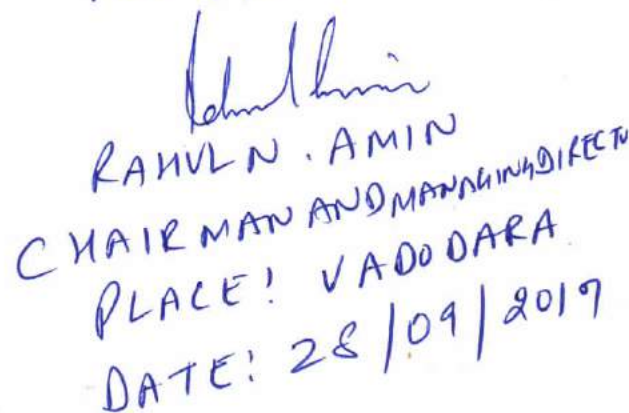 RAHUL N. AMIN
CHAIRMAN AND MANAGING DIRECTO
PLACE: VADODARA
DATE: 28/09/2019